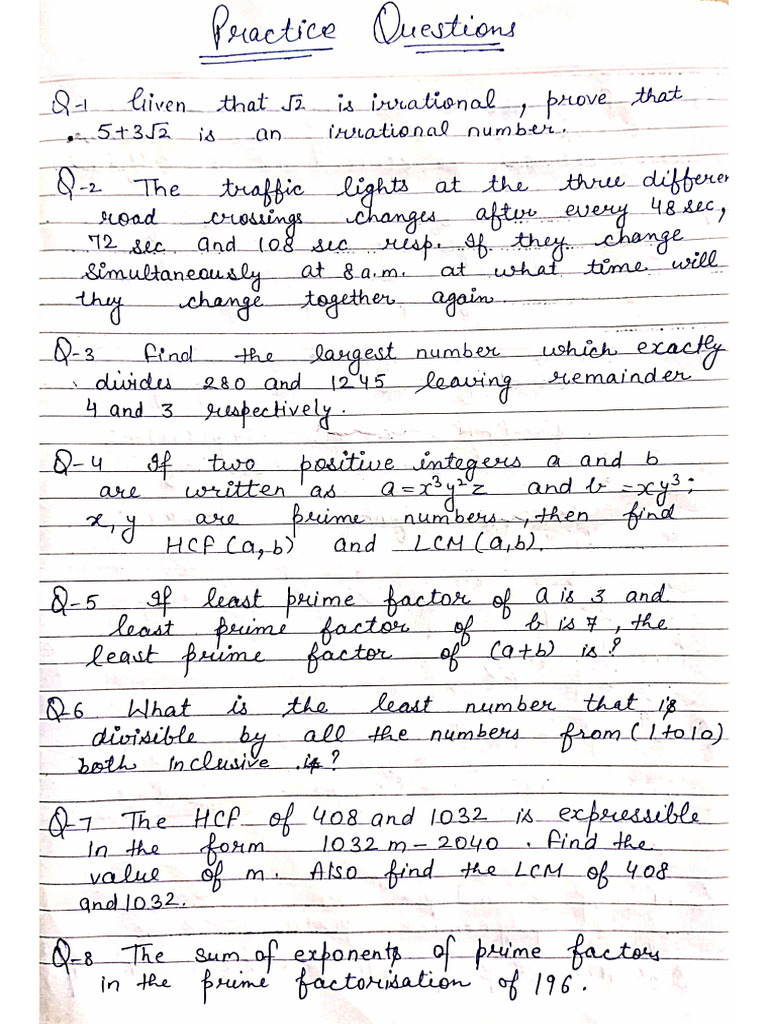 Practice Questions
Q-1 Given that √2 is irrational, prove that
5+3√2 is an irrational number.
Q-2 The traffic lights at the three differen
road crossings changes after every 48 sec,
72 sec and 108 sec resp. If they change
simultaneously at 8 a.m. at what time will
they change together again.
Q-3 Find the largest number which exactly
divides 280 and 1245 leaving remainder
4 and 3 respectively.
Q-4 If two positive integers a and b
are written as a=x³y²z and b=xy³;
x,y are prime numbers, then find
HCF(a,b) and LCM(a,b).
Q-5 If least prime factor of a is 3 and
least prime factor of b is 7, the
least prime factor of (a+b) is?
Q-6 What is the least number that is
divisible by all the numbers from (1 to 10)
both inclusive is?
Q-7 The HCF of 408 and 1032 is expressible
in the form 1032 m - 2040. Find the
value of m. Also find the LCM of 408
and 1032.
Q-8 The sum of exponents of prime factors
in the prime factorisation of 196.